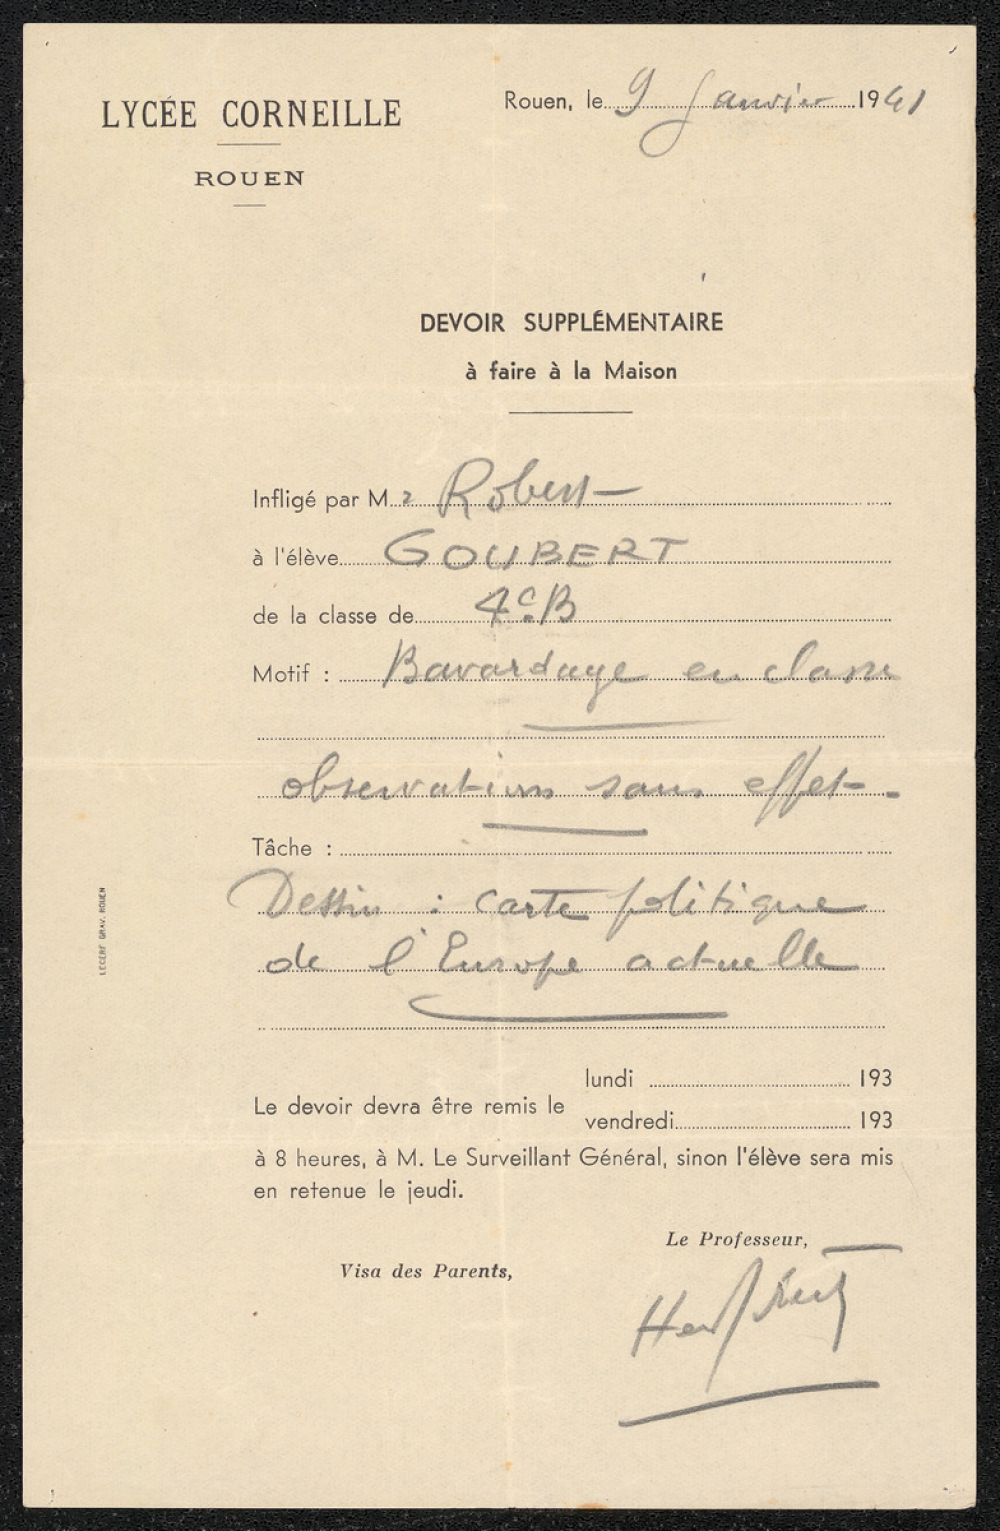 LYCÉE CORNEILLE
ROUEN
Rouen, le 9 Janvier 1941
DEVOIR SUPPLÉMENTAIRE
à faire à la Maison
Infligé par M. r Robert
à l'élève GOUBERT
de la classe de 4e B
Motif : Bavardage en classe
observations sans effet.
Tâche :
Dessin : carte politique
de l'Europe actuelle
Le devoir devra être remis le
lundi 193
vendredi 193
à 8 heures, à M. Le Surveillant Général, sinon l'élève sera mis
en retenue le jeudi.
Le Professeur,
Visa des Parents,
LECERF GRAV. ROUEN